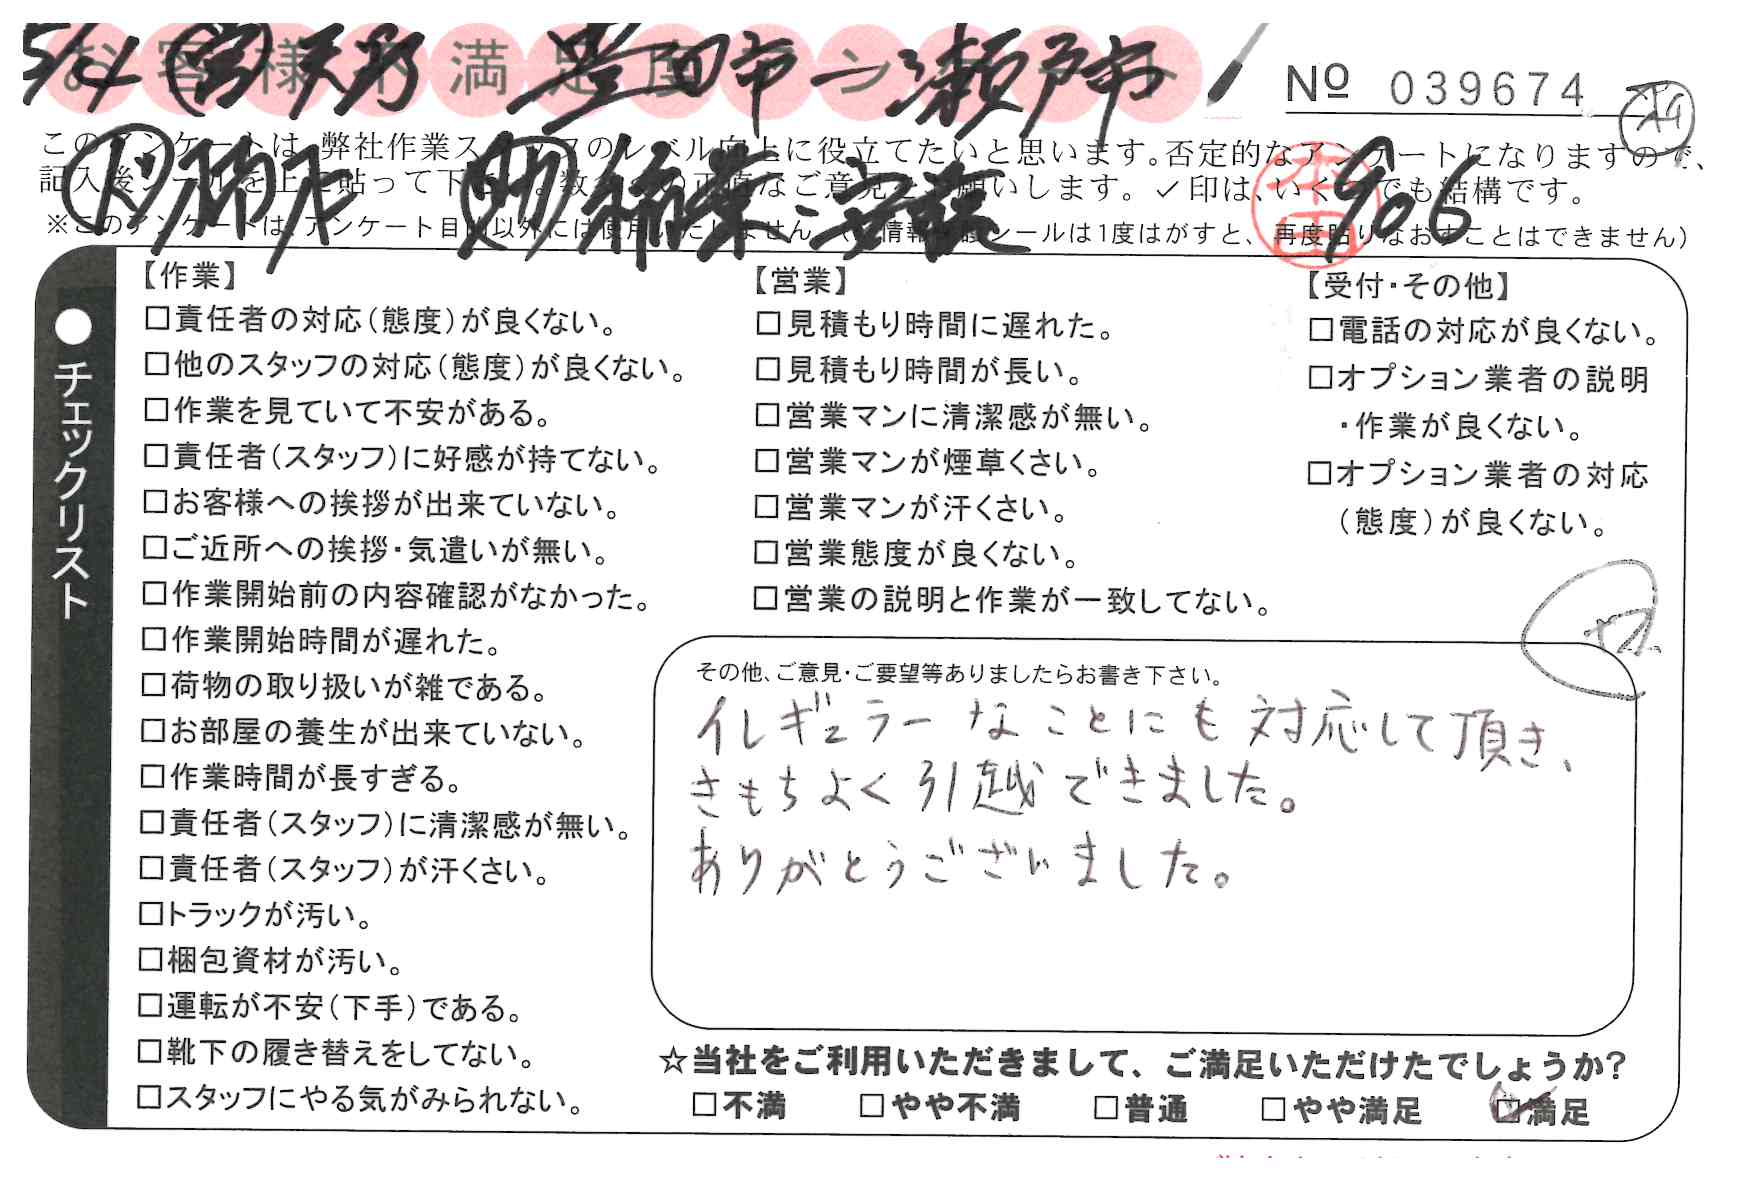 お客様の満足度アンケート
天野 豊田市→瀬戸市
№ 039674
このアンケートは、弊社作業スタッフのレベル向上に役立てたいと思います。否定的なアンケートになりますので、
記入後シールを上に貼って下さい。数多くの正直なご意見をお願いします。✓印は、いくつでも結構です。
※このアンケートは、アンケート目的以外には使用いたしません。(個情報保護シールは1度はがすと、再度貼りなおすことはできません)
稲葉・安護
906
本田
●チェックリスト
【作業】
□責任者の対応(態度)が良くない。
□他のスタッフの対応(態度)が良くない。
□作業を見ていて不安がある。
□責任者(スタッフ)に好感が持てない。
□お客様への挨拶が出来ていない。
□ご近所への挨拶・気遣いが無い。
□作業開始前の内容確認がなかった。
□作業開始時間が遅れた。
□荷物の取り扱いが雑である。
□お部屋の養生が出来ていない。
□作業時間が長すぎる。
□責任者(スタッフ)に清潔感が無い。
□責任者(スタッフ)が汗くさい。
□トラックが汚い。
□梱包資材が汚い。
□運転が不安(下手)である。
□靴下の履き替えをしてない。
□スタッフにやる気がみられない。
【営業】
□見積もり時間に遅れた。
□見積もり時間が長い。
□営業マンに清潔感が無い。
□営業マンが煙草くさい。
□営業マンが汗くさい。
□営業態度が良くない。
□営業の説明と作業が一致してない。
【受付・その他】
□電話の対応が良くない。
□オプション業者の説明
・作業が良くない。
□オプション業者の対応
(態度)が良くない。
その他、ご意見・ご要望等ありましたらお書き下さい。
イレギュラーなことにも対応して頂き、
きもちよく引越できました。
ありがとうございました。
☆当社をご利用いただきまして、ご満足いただけたでしょうか?
□不満 □やや不満 □普通 □やや満足 ☑満足